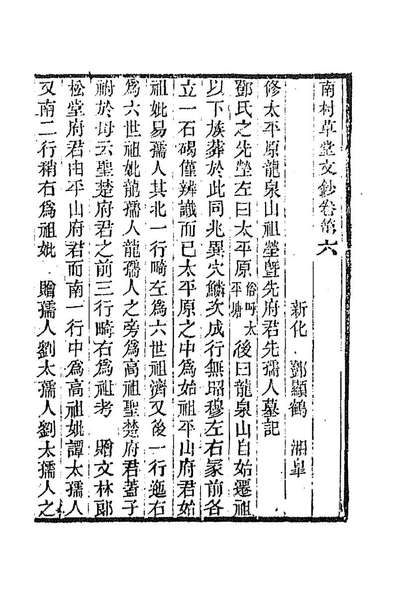 南村草堂文鈔卷第六
新化 鄧顯鶴 湘皐
修太平原龍泉山祖塋曁先府君先孺人墓記
鄧氏之先塋左曰太平原俗呼太平塘後曰龍泉山自始遷祖
以下族葬於此同兆異穴鱗次成行無昭穆左右冢前各
立一石碣僅辨識而已太平原之中爲始祖平山府君始
祖妣易孺人其北一行畸左爲六世祖濟又後一行迤右
爲六世祖妣龍孺人龍孺人之旁爲高祖聖楚府君蓋子
祔於母云聖楚府君之前三行畸右爲祖考 贈文林郞
松堂府君由平山府君而南一行中爲高祖妣譚太孺人
又南二行稍右爲祖妣 贈孺人劉太孺人劉太孺人之